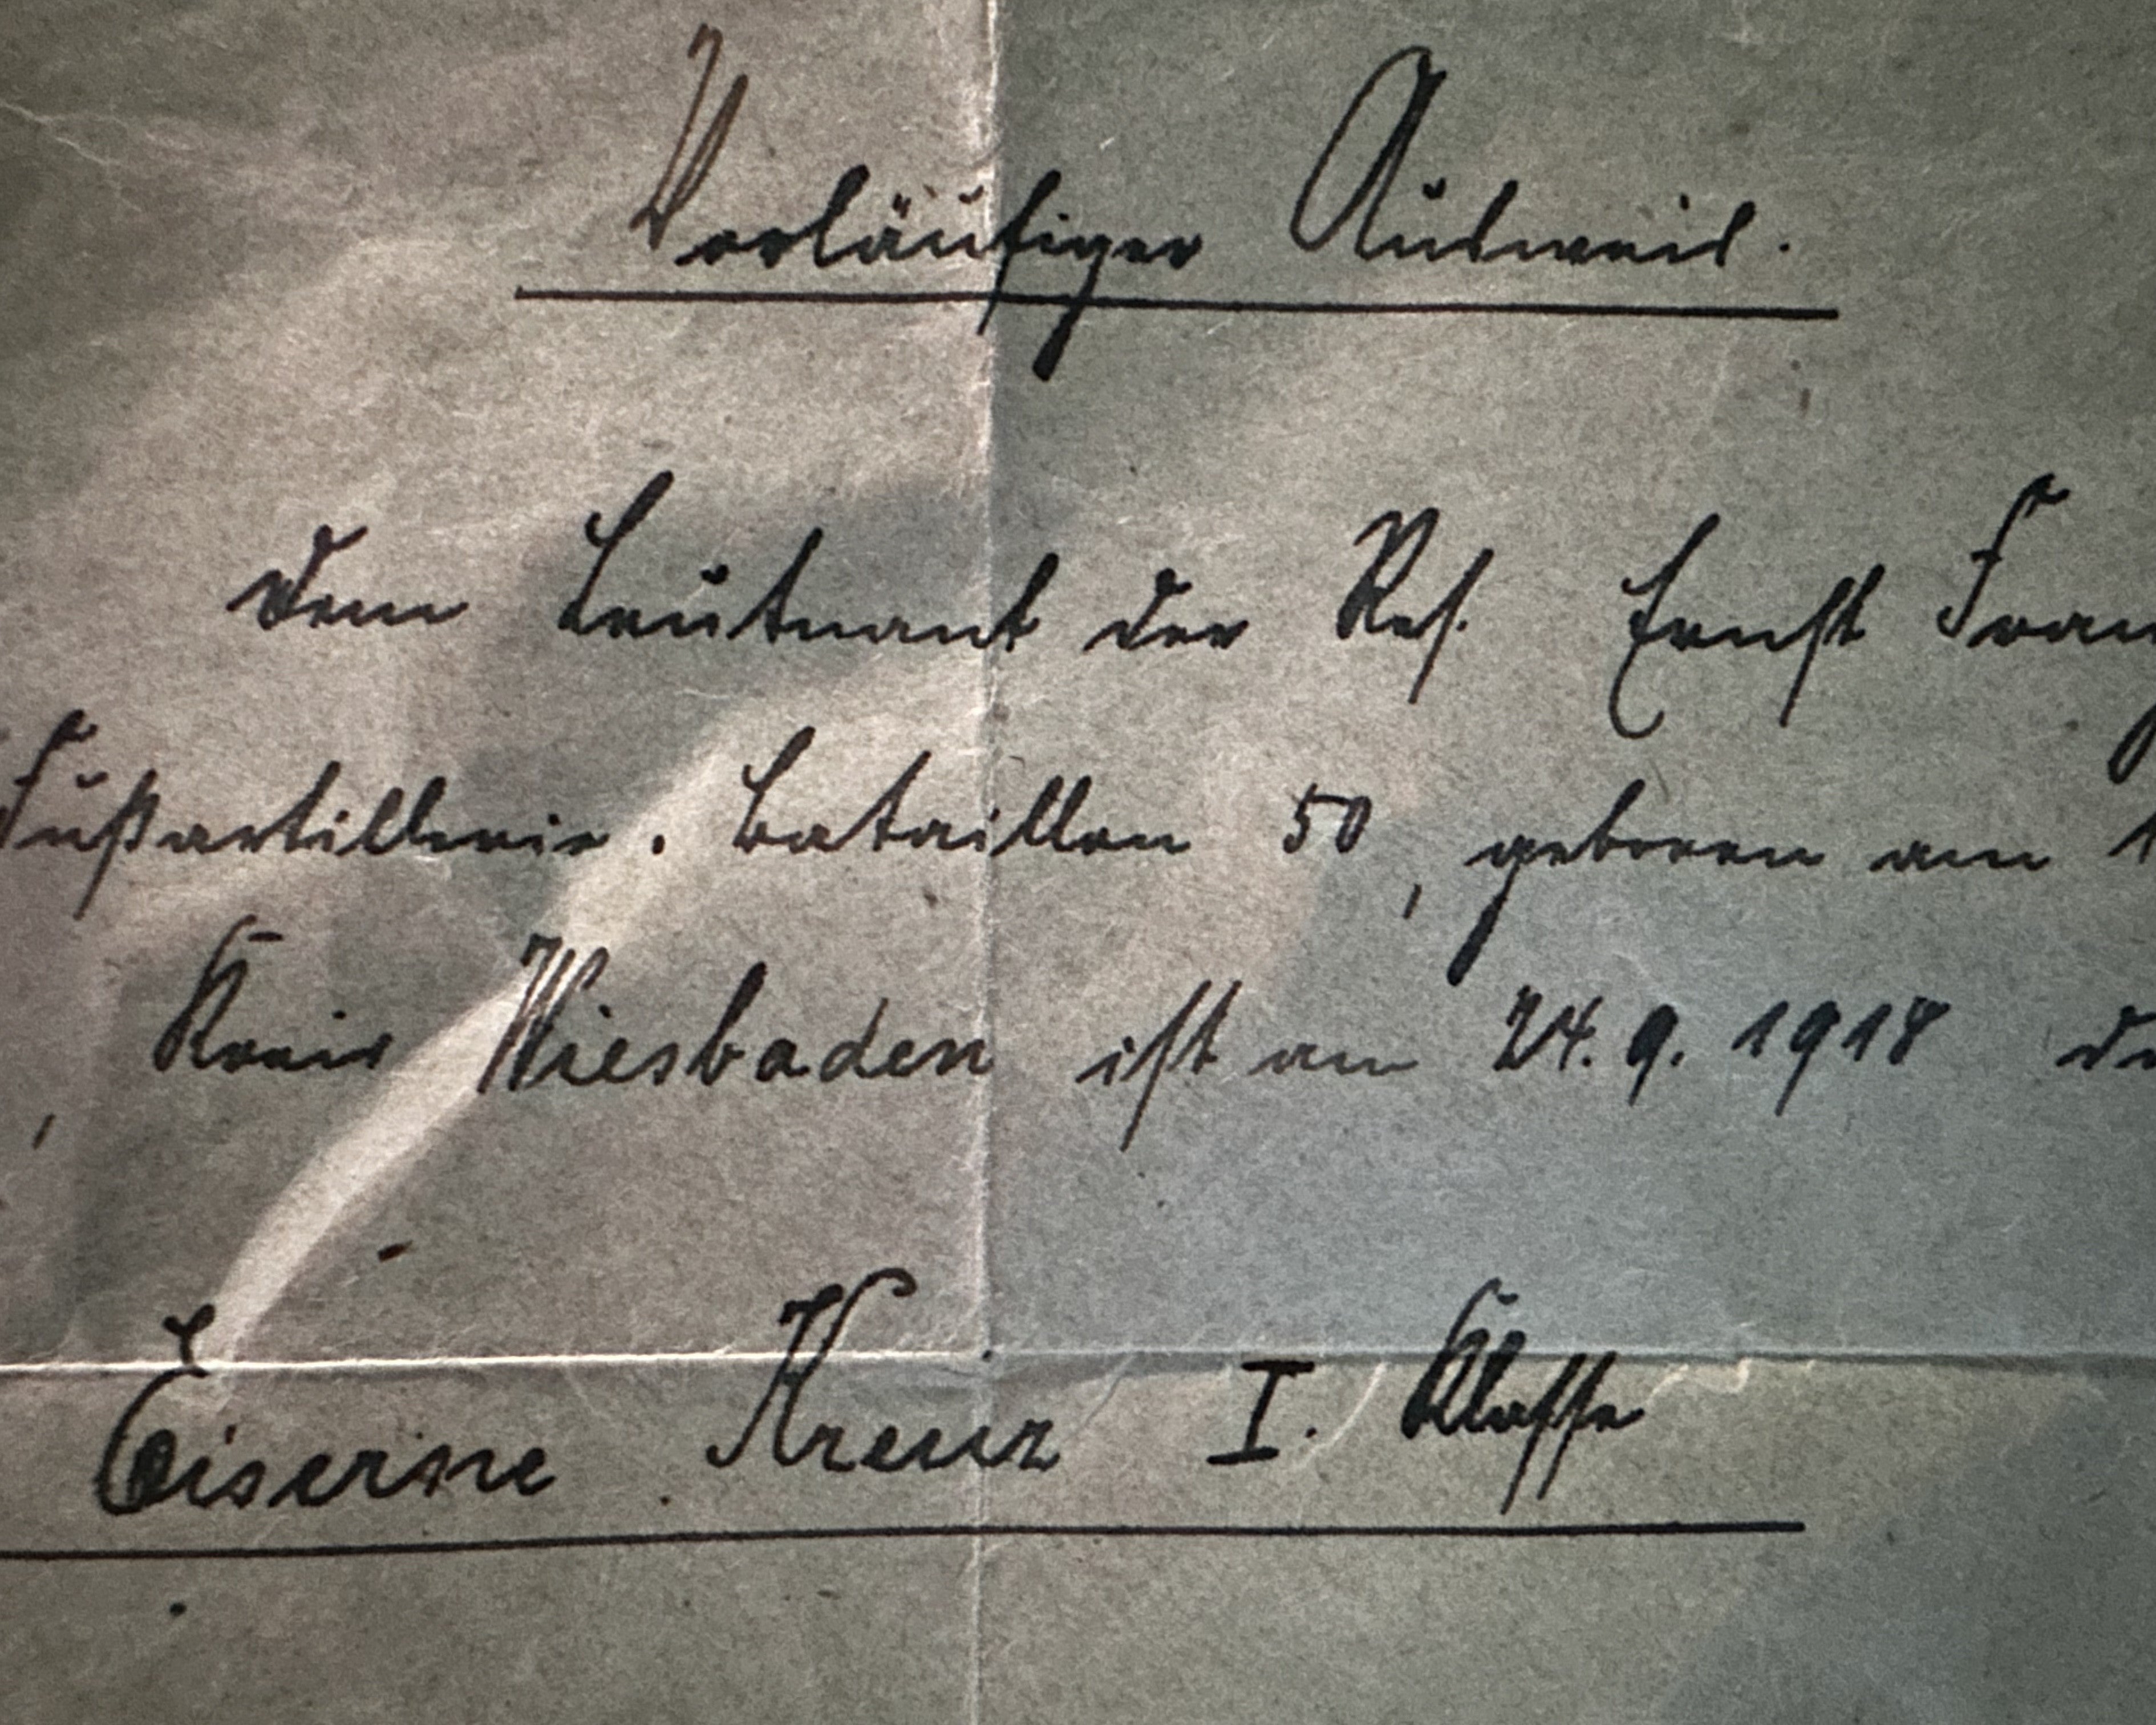 Vorläufiger Ausweis.
Dem Leutnant der Res. Ernst
Fußartillerie. Bataillon 50, geboren am
, Kreis Wiesbaden ist am 24. 9. 1918
Eiserne Kreuz I. Klasse